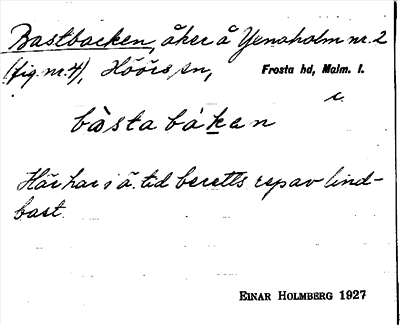 Bastbacken, åker å Yenaholm nr. 2
(fig. nr. 4), Höörs sn, Frosta hd, Malm. l.
c.
bàsta bákan
Här har i ä. tid beretts rep av lind-
bast.
EINAR HOLMBERG 1927